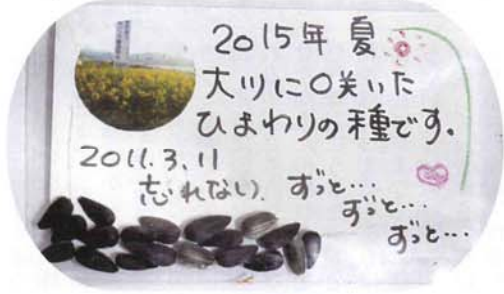 2015年 夏
大川に〇咲いた
ひまわりの種です。
2011.3.11
忘れない。 ずっと…
ずっと…
ずっと…